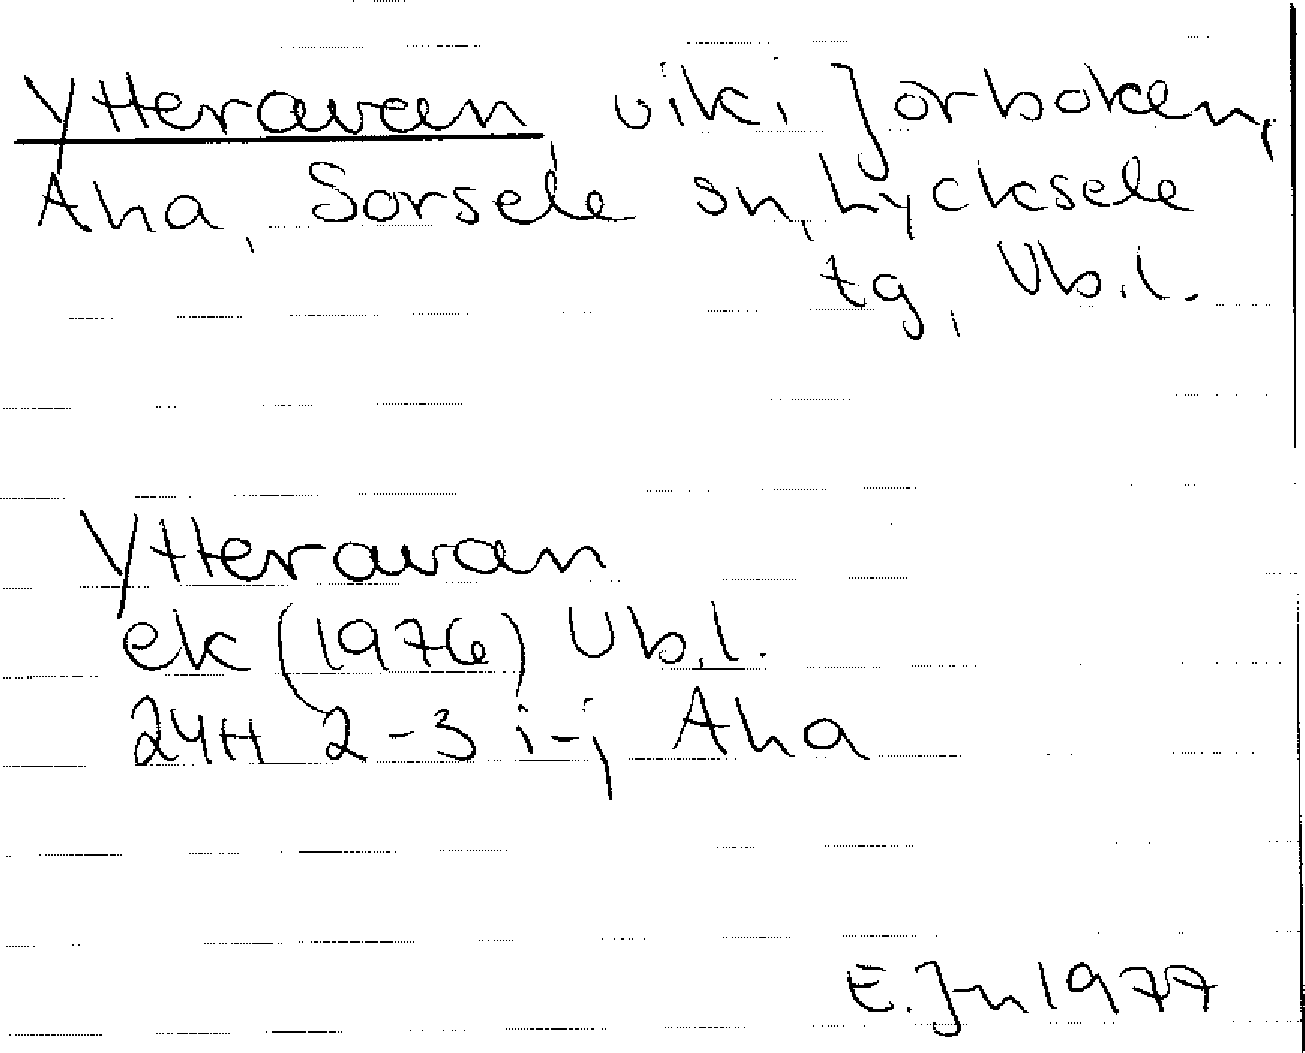 Ytteravan vik i Jorboken,
Aha, Sorsele sn, Lycksele
tg, Vb.l.
Ytteravan
ek (1976) Vb.l.
24H 2-3 i-j Aha
E.Jn 1977